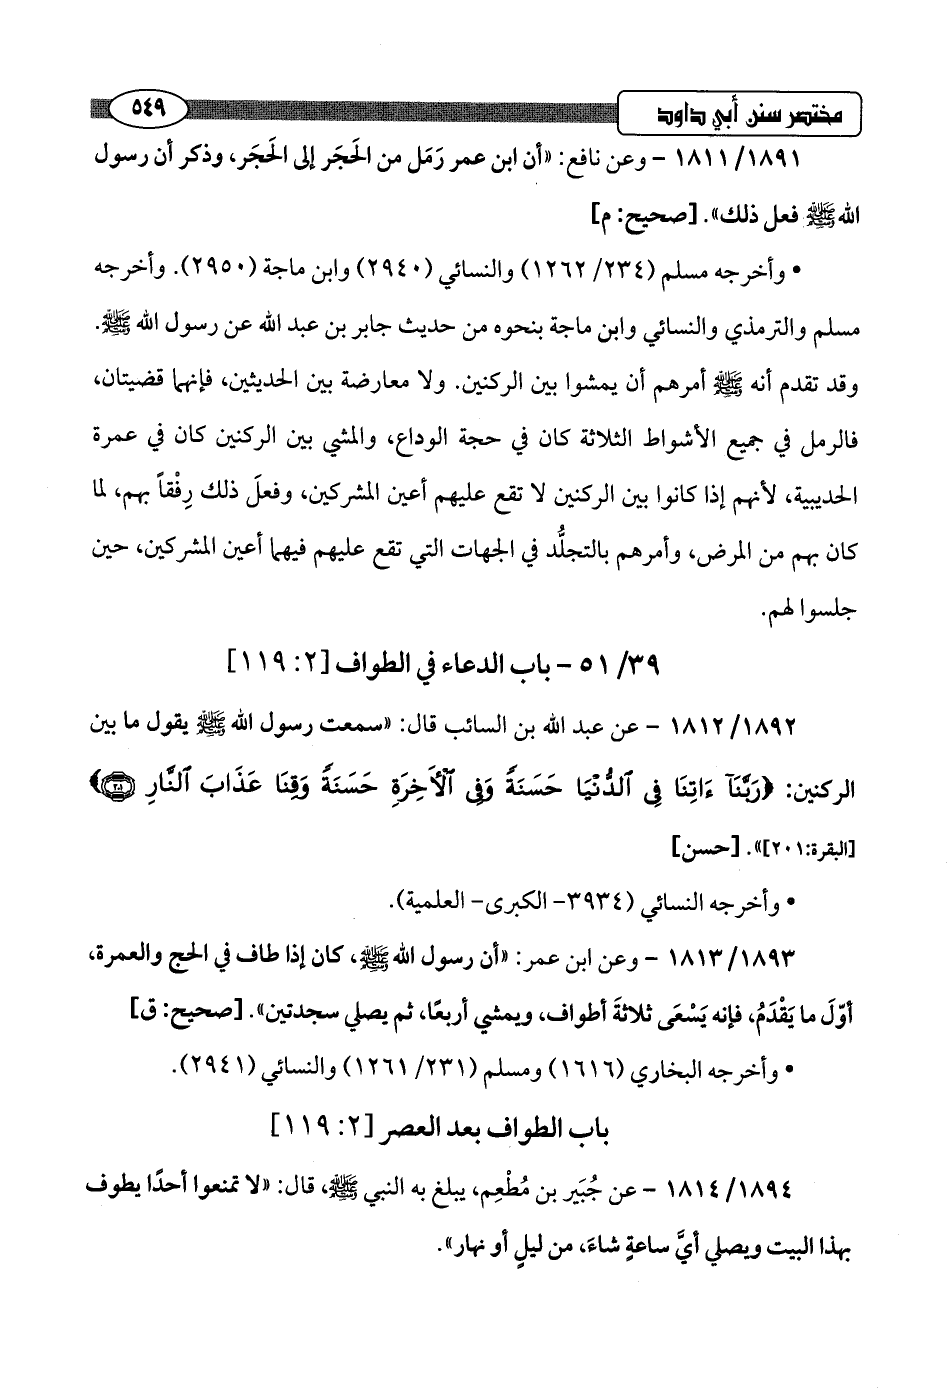 مختصر سنن أبي داود ٥٤٩
١٨١١/١٨٩١ - وعن نافع: «أن ابن عمر رَمَل من الحَجَر إلى الحَجَر، وذكر أن رسول
الله ﷺ فعل ذلك». [صحيح: م]
• وأخرجه مسلم (١٢٦٢/٢٣٤) والنسائي (٢٩٤٠) وابن ماجة (٢٩٥٠). وأخرجه
مسلم والترمذي والنسائي وابن ماجة بنحوه من حديث جابر بن عبد الله عن رسول الله ﷺ.
وقد تقدم أنه ﷺ أمرهم أن يمشوا بين الركنين. ولا معارضة بين الحديثين، فإنهما قضيتان،
فالرمل في جميع الأشواط الثلاثة كان في حجة الوداع، والمشي بين الركنين كان في عمرة
الحديبية، لأنهم إذا كانوا بين الركنين لا تقع عليهم أعين المشركين، وفعلَ ذلك رِفْقاً بهم، لما
كان بهم من المرض، وأمرهم بالتجلُّد في الجهات التي تقع عليهم فيهما أعين المشركين، حين
جلسوا لهم.
٥١/٣٩ - باب الدعاء في الطواف [٢: ١١٩]
١٨١٢/١٨٩٢ - عن عبد الله بن السائب قال: «سمعت رسول الله ﷺ يقول ما بين
الركنين: ﴿رَبَّنَآ ءَاتِنَا فِى ٱلدُّنْيَا حَسَنَةً وَفِى ٱلْأَخِرَةِ حَسَنَةً وَقِنَا عَذَابَ ٱلنَّارِ ۝٢٠١﴾
[البقرة:٢٠١]». [حسن]
• وأخرجه النسائي (٣٩٣٤- الكبرى- العلمية).
١٨١٣/١٨٩٣ - وعن ابن عمر: «أن رسول الله ﷺ، كان إذا طاف في الحج والعمرة،
أوّلَ ما يَقْدَمُ، فإنه يَسْعَى ثلاثةَ أطواف، ويمشي أربعًا، ثم يصلي سجدتين». [صحيح: ق]
• وأخرجه البخاري (١٦١٦) ومسلم (١٢٦١/٢٣١) والنسائي (٢٩٤١).
باب الطواف بعد العصر [٢: ١١٩]
١٨١٤/١٨٩٤ - عن جُبَير بن مُطْعِم، يبلغ به النبي ﷺ، قال: «لا تمنعوا أحدًا يطوف
بهذا البيت ويصلي أيَّ ساعةٍ شاءَ، من ليلٍ أو نهار».